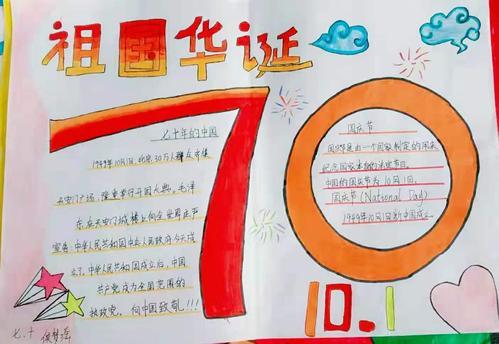 祖国华诞
70
七十年的中国
1949年10月1日,北京30万人群众齐集
天安门广场,隆重举行开国大典,毛泽
东在天安门城楼上向全世界庄严
宣告:中华人民共和国中央人民政府今天成
立了,中华人民共和国成立后,中国
共产党成为全国范围的
执政党。向中国致敬!!!
国庆节
国庆节是由一个国家制定的用来
纪念国家本身的法定节日。
中国的国庆节为10月1日。
国庆节(National Day)
1949年10月1日新中国成立。
10.1
七.十